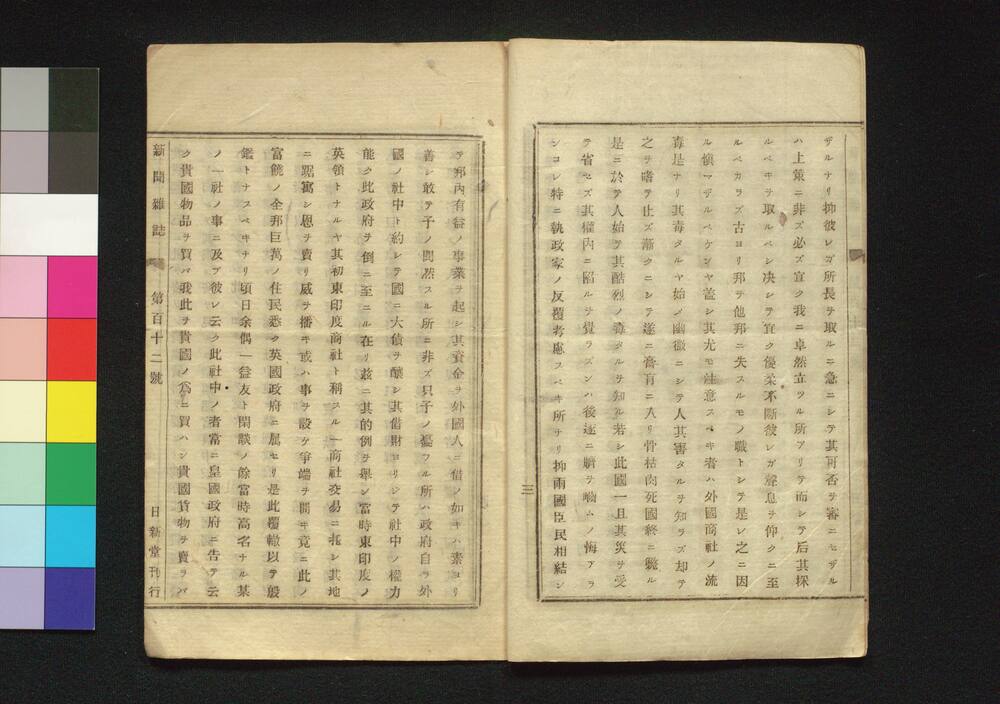 ザルナリ抑彼レガ所長ヲ取ルニ急ニシテ其可否ヲ審ニセザル
ハ上策ニ非ズ必ズ宜ク我ニ卓然立ツル所アリテ而シテ后其採
ルベキヲ取ルベシ决シテ宜ク優柔不斷彼レガ鼻息ヲ仰クニ至
ルベカラズ古ヨリ邦ヲ他邦ニ失スルモノ職トシテ是レ之ニ因
ル愼マザルベケンヤ蓋シ其尤モ注意スベキ者ハ外國商社ノ流
毒是ナリ其毒タルヤ始ノ幽微ニシテ人其害タルヲ知ラズ却テ
之ヲ嗜テ止ズ漸クニシテ遂ニ膏肓ニ入リ骨枯肉死國終ニ斃ル
是ニ於テ人始テ其酷烈ノ毒タルヲ知ル若シ此國一旦其災ヲ受
テ省セズ其權內ニ陷ルヲ覺ラズンハ後逐ニ臍ヲ噛ムノ悔アラ
ンコレ特ニ執政家ノ反覆考慮スベキ所ナリ抑兩國臣民相結ン
三
テ邦内有益ノ事業ヲ起シ其資金ヲ外國人ニ借ノ如キハ素ヨリ
善シ敢テ予ノ間然スル所ニ非ズ只予ノ憂フル所ハ政府自ラ外
國ノ社中ト約シテ國ニ大債ヲ釀シ其借財ヨリシテ社中ノ權力
能ク此政府ヲ倒ニ至ニル在リ茲ニ其的例ヲ擧ン當時東印度ノ
英領トナルヤ其初東印度商社ト稱スル一商社交易ニ托シ其地
ニ踞寓シ恩ヲ賣リ威ヲ播キ或ハ事ヲ設ケ爭端ヲ開キ竟ニ此ノ
富饒ノ全邦巨萬ノ住民悉ク英國政府ニ属セリ是此覆轍以テ殷
鑑トナスベキナリ頃日余偶一益友ト閑談ノ餘當時高名ナル某
ノ一社ノ事ニ及ブ彼レ云ク此社中ノ者當ニ皇國政府ニ告テ云
ク貴國物品ヲ買バ我此ヲ貴國ノ爲ニ買ハン貴國貨物ヲ賣ラバ
新聞雜誌 第百十二號 日新堂刊行